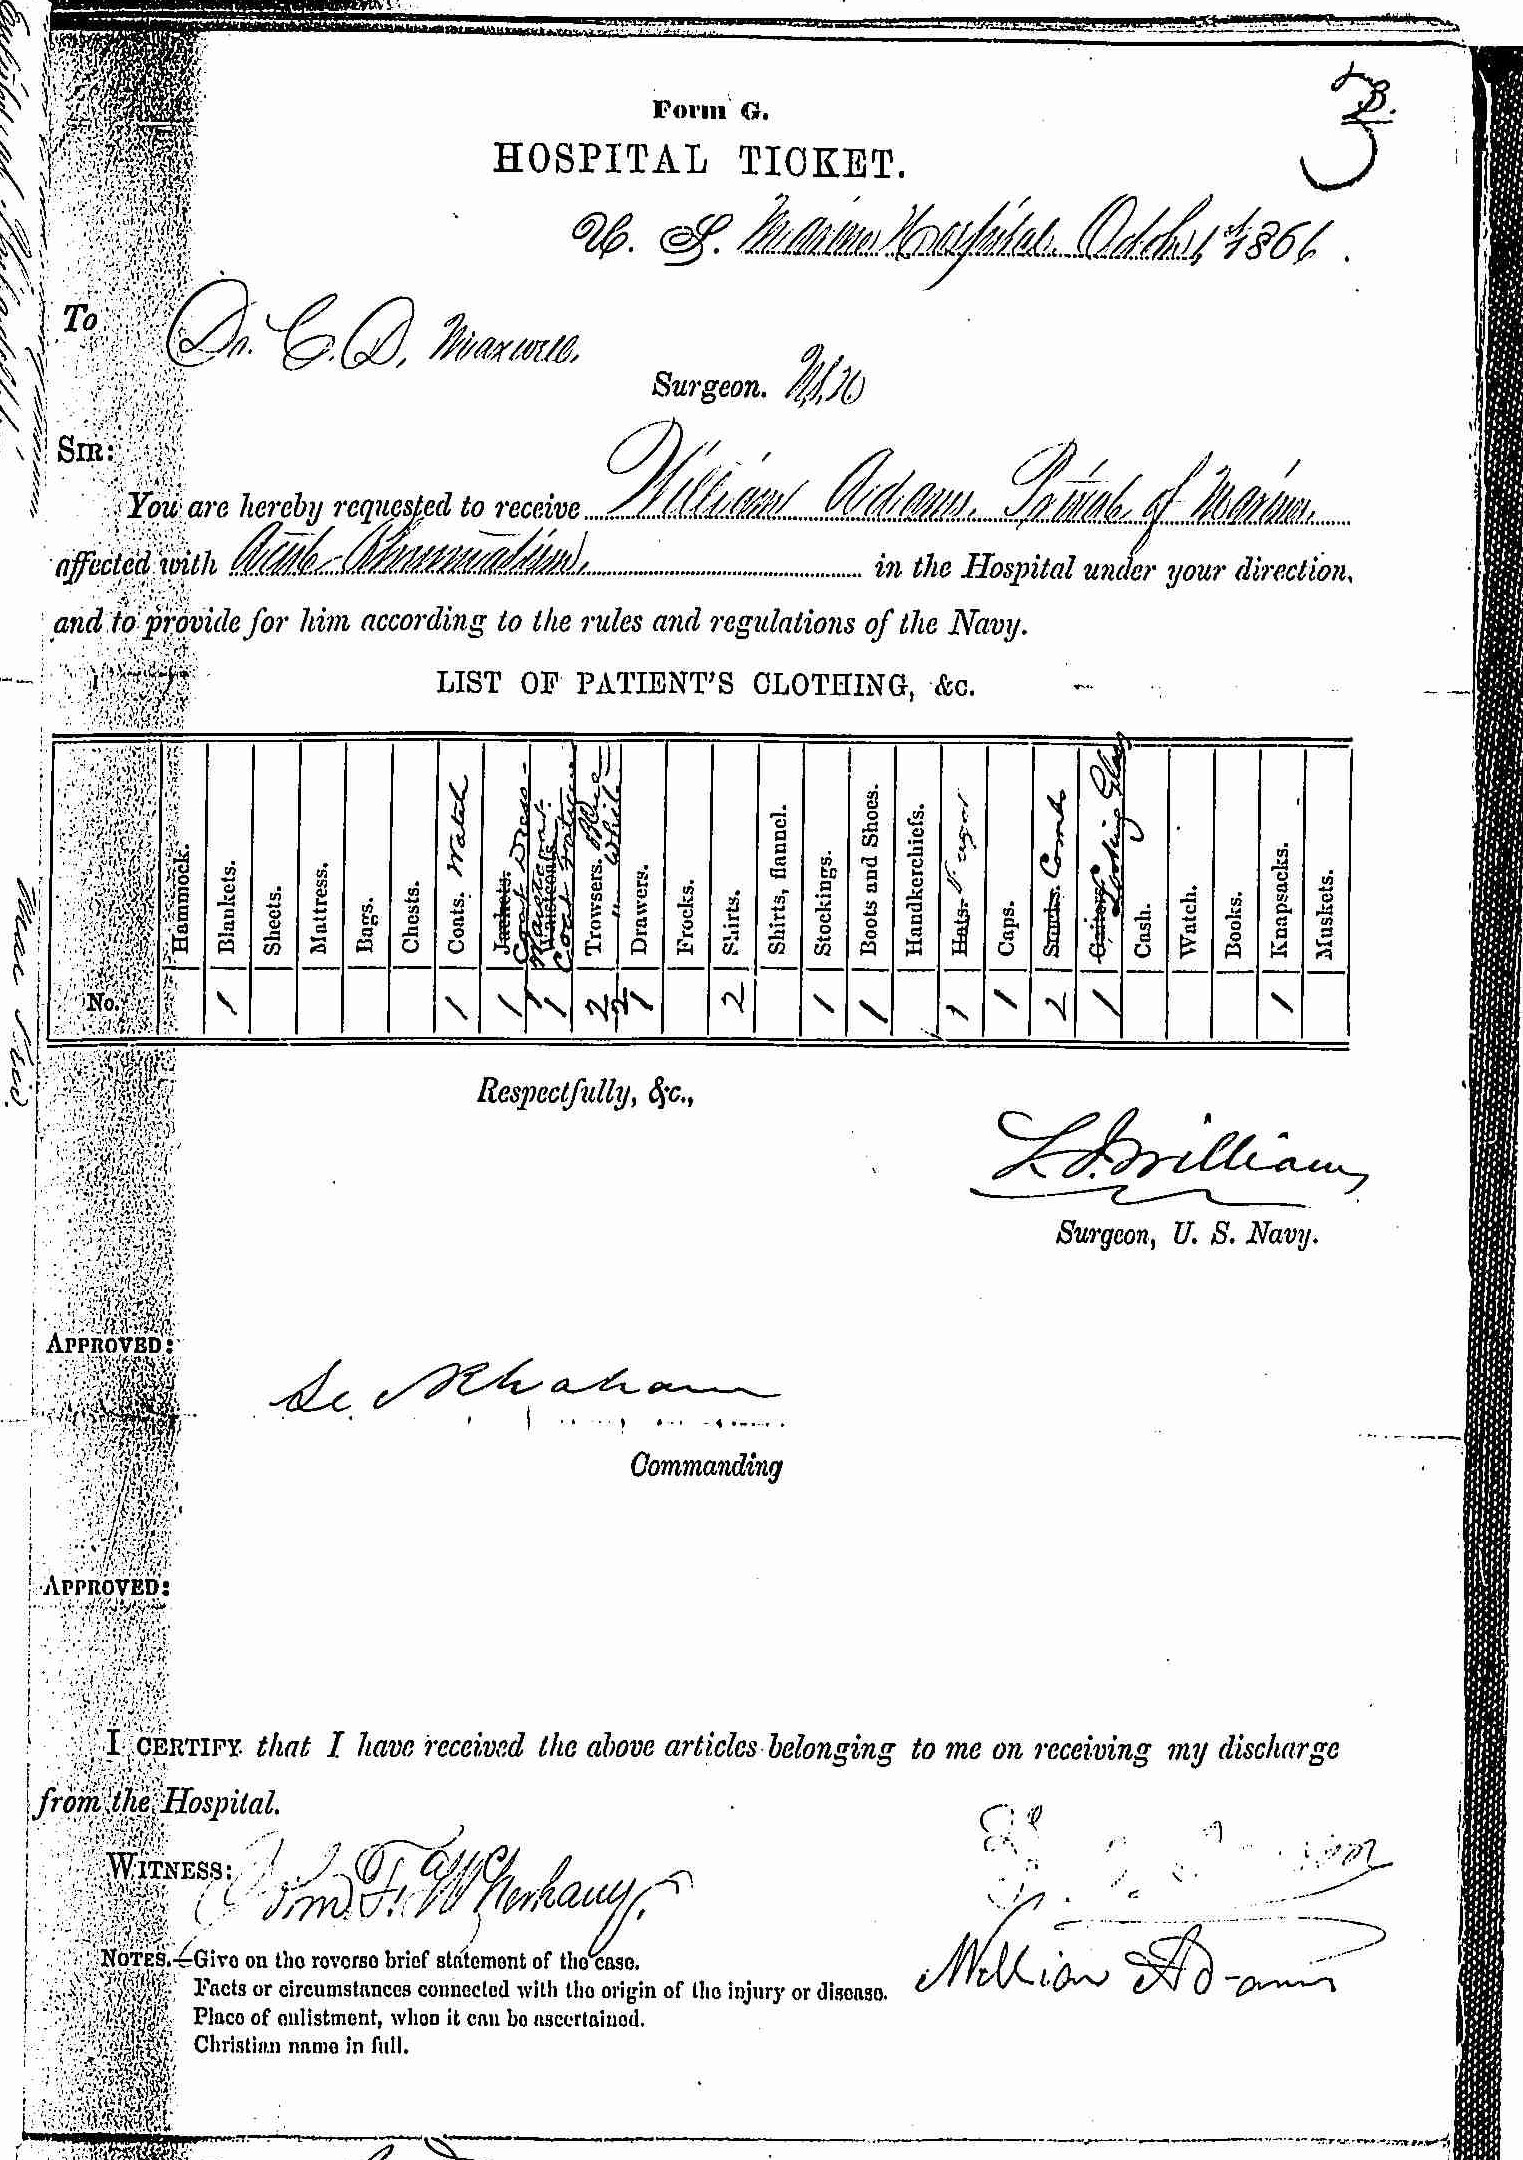 B.
3
Form G.
HOSPITAL TICKET.
U. S. Marine Hospital. Octbr 1st 1866.
To Dr. C. D. Maxwell.
Surgeon. U.S.N
SIR:
You are hereby requested to receive William Adams. Private of Marines.
affected with Acute Rheumatism, in the Hospital under your direction,
and to provide for him according to the rules and regulations of the Navy.
LIST OF PATIENT'S CLOTHING, &c.
Hammock.
Blankets.
Sheets.
Mattress.
Bags.
Chests.
Coats. Watch
Jackets. Coat Dress
Waistcoats. Coat Fatigue
Trowsers. Blue
" White
Drawers.
Frocks.
Shirts.
Shirts, flannel.
Stockings.
Boots and Shoes.
Handkerchiefs.
Hats.
Caps.
Stocks. Combs
Gaiters. Looking Glass
Cash.
Watch.
Books.
Knapsacks.
Muskets.
No. 1 1 1 1 1 2 2 1 2 1 1 1 1 2 1 1
Respectfully, &c.,
L. J. Williams
Surgeon, U. S. Navy.
APPROVED:
Commanding
APPROVED:
I CERTIFY that I have received the above articles belonging to me on receiving my discharge
from the Hospital.
WITNESS:
William Adams
NOTES.—Give on the reverse brief statement of the case.
Facts or circumstances connected with the origin of the injury or disease.
Place of enlistment, when it can be ascertained.
Christian name in full.